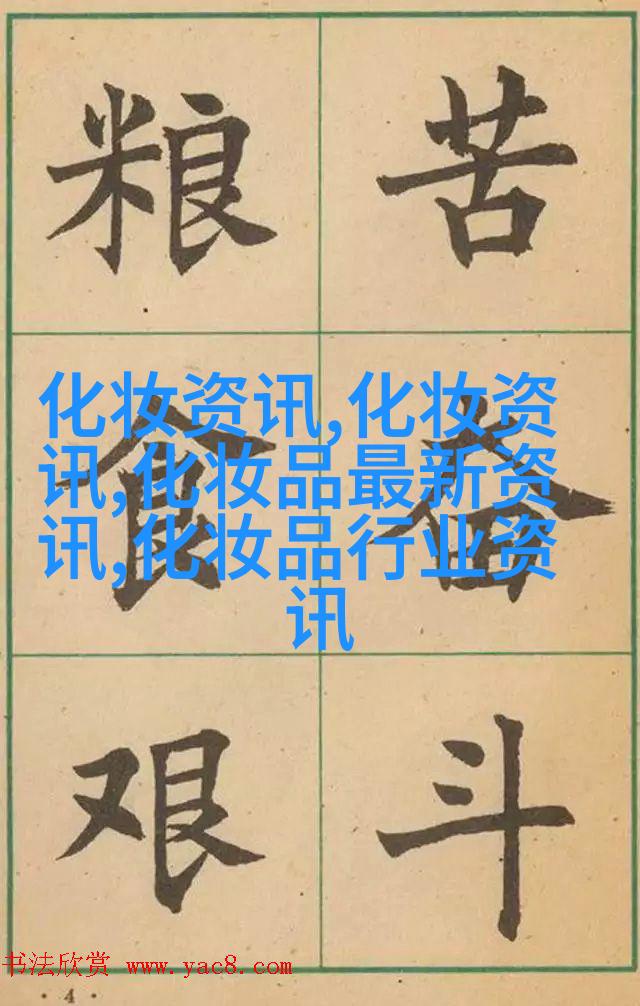 粮食艰
苦奋斗
化妆资讯,化妆资
讯,化妆品最新资
讯,化妆品行业资
讯
书法欣赏 www.yac8.com
· 4 ·